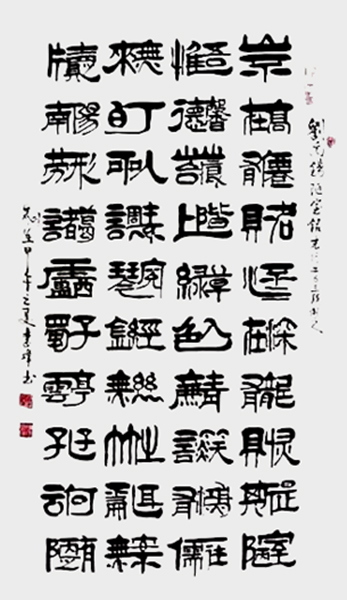 劉禹錫陋室銘
山不在高有僊則名水不在深有龍則靈斯是陋室
惟吾德馨苔痕上階綠草色入簾青談笑有鴻儒往
來無白丁可以調素琴閱金經無絲竹之亂耳無案
牘之南陽勞形諸葛廬西蜀子雲亭孔子云何陋有
甲午之夏